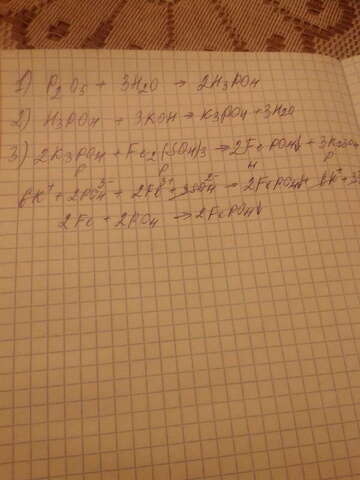 1) P₂O₅ + 3H₂O → 2H₃PO₄
2) H₃PO₄ + 3KOH → K₃PO₄ + 3H₂O
3) 2K₃PO₄ + Fe₂(SO₄)₃ → 2FePO₄↓ + 3K₂SO₄
р р н р
6K⁺ + 2PO₄³⁻ + 2Fe³⁺ + 3SO₄²⁻ → 2FePO₄↓ + 6K⁺ + 3
2Fe + 2PO₄ → 2FePO₄↓